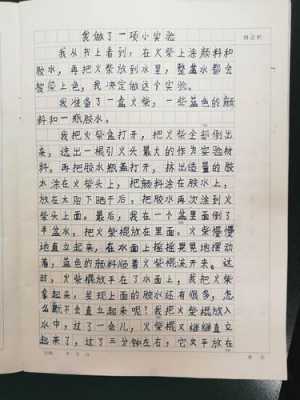 我做了一项小实验
我从书上看到：在火柴上涂颜料和
胶水，再把火柴放到水里，整盆水都会
皆染上色，我决定做这个实验。
我准备了一盒火柴，一些蓝色的颜
料和一瓶胶水。
我把火柴盒打开，把火柴全部倒出
来，选出一根引火头最大的作为实验材
料。再把胶水瓶盖打开，挤出适量的胶
水涂在火柴头上，把颜料涂在胶水上，
放在太阳下晒干后，把胶水再次涂到火
柴头上面。最后，我在一个盆里面倒了
半盆水，把火柴放在里面。火柴慢慢
地直立起来，在水面上摇摇晃晃地摆动
着，蓝色的颜料顺着火柴棍流开来。这
时，火柴棍放平在了水面上，我把火柴
拿起来，发现上面的胶水还有很多，怎
么就不会直立起来呢？我把火柴棍放入
水中，过了一会儿，火柴棍又继续直立
起来了，过了三分钟左右，它又平放在